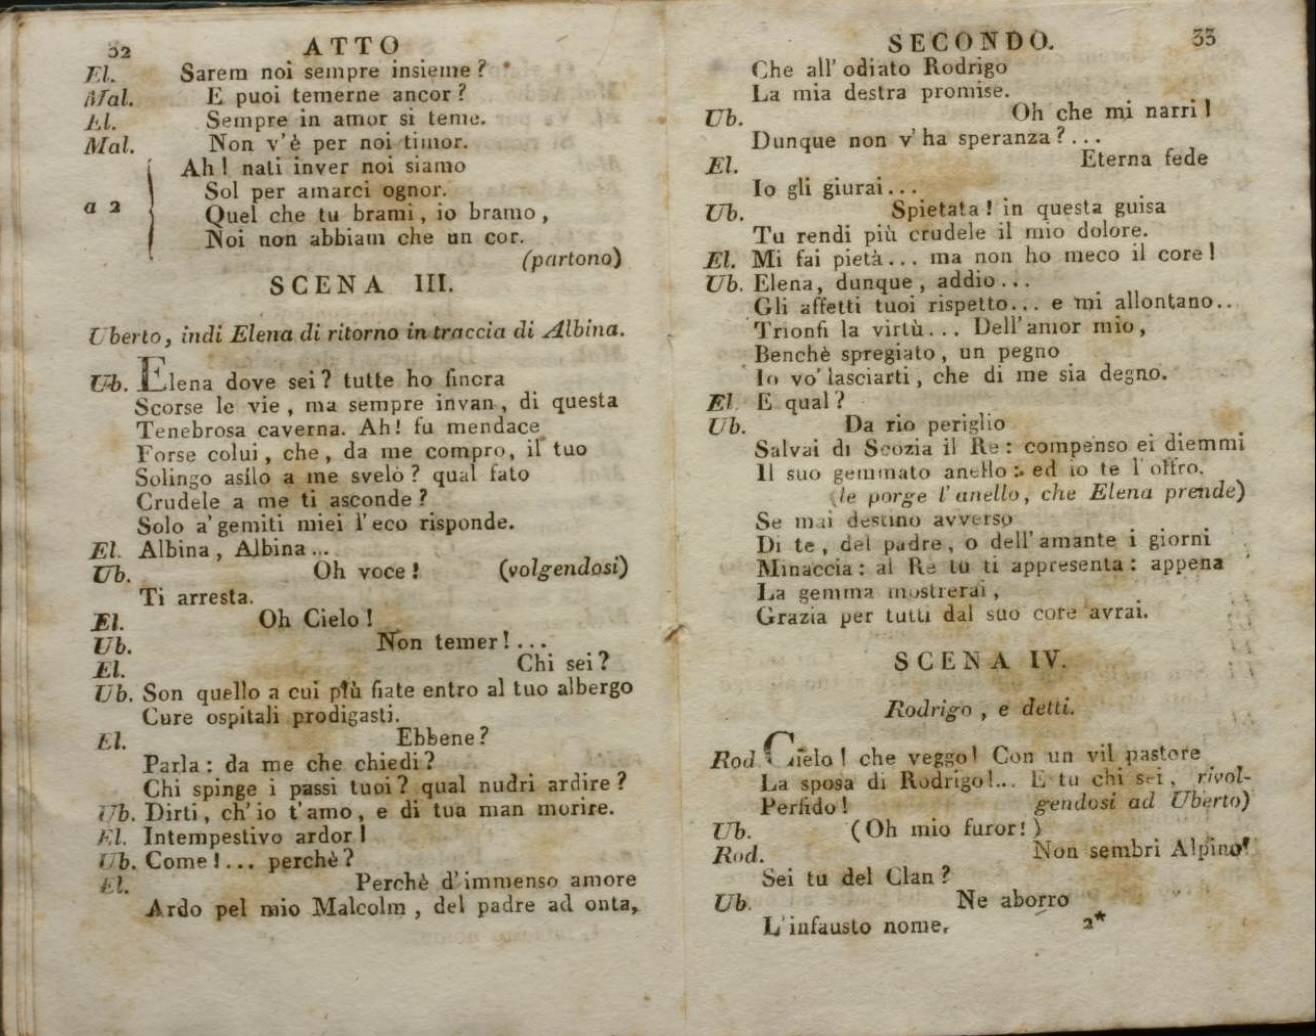 32
ATTO
El. Sarem noi sempre insieme?
Mal. E puoi temerne ancor?
El. Sempre in amor si teme.
Mal. Non v'è per noi timor.
Ah! nati inver noi siamo
Sol per amarci ognor.
a 2
Quel che tu brami, io bramo,
Noi non abbiam che un cor.
(partono)
SCENA III.
Uberto, indi Elena di ritorno in traccia di Albina.
Ub. Elena dove sei? tutte ho finora
Scorse le vie, ma sempre invan, di questa
Tenebrosa caverna. Ah! fu mendace
Forse colui, che, da me compro, il tuo
Solingo asilo a me svelò? qual fato
Crudele a me ti asconde?
Solo a' gemiti miei l'eco risponde.
El. Albina, Albina...
Ub. Oh voce! (volgendosi)
Ti arresta.
El. Oh Cielo!
Ub. Non temer!...
El. Chi sei?
Ub. Son quello a cui più fiate entro al tuo albergo
Cure ospitali prodigasti.
El. Ebbene?
Parla: da me che chiedi?
Chi spinge i passi tuoi? qual nudri ardire?
Ub. Dirti, ch'io t'amo, e di tua man morire.
El. Intempestivo ardor!
Ub. Come!... perchè?
El. Perchè d'immenso amore
Ardo pel mio Malcolm, del padre ad onta,
SECONDO.
33
Che all' odiato Rodrigo
La mia destra promise.
Ub. Oh che mi narri!
Dunque non v'ha speranza?...
El. Eterna fede
Io gli giurai...
Ub. Spietata! in questa guisa
Tu rendi più crudele il mio dolore.
El. Mi fai pietà... ma non ho meco il core!
Ub. Elena, dunque, addio...
Gli affetti tuoi rispetto... e mi allontano..
Trionfi la virtù... Dell'amor mio,
Benchè spregiato, un pegno
Io vo' lasciarti, che di me sia degno.
El. E qual?
Ub. Da rio periglio
Salvai di Scozia il Re: compenso ei diemmi
Il suo gemmato anello: ed io te l'offro.
(le porge l'anello, che Elena prende)
Se mai destino avverso
Di te, del padre, o dell'amante i giorni
Minaccia: al Re tu ti appresenta: appena
La gemma mostrerai,
Grazia per tutti dal suo core avrai.
SCENA IV.
Rodrigo, e detti.
Rod. Cielo! che veggo! Con un vil pastore
La sposa di Rodrigo!... E tu chi sei, rivol-
Perfido! gendosi ad Uberto)
Ub. (Oh mio furor!)
Rod. Non sembri Alpino!
Sei tu del Clan?
Ub. Ne aborro
L'infausto nome.
2*